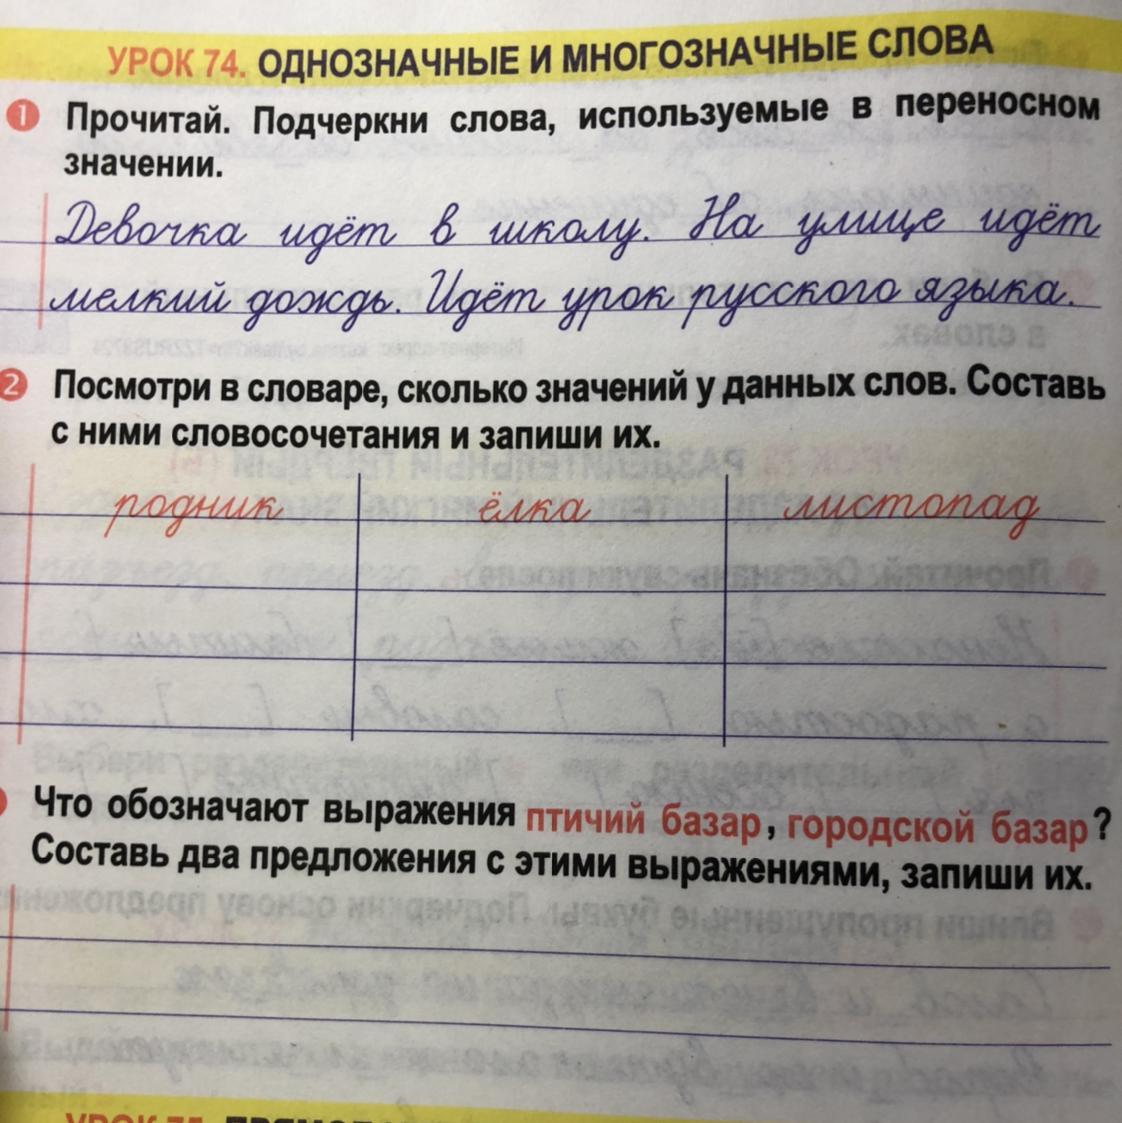 УРОК 74. ОДНОЗНАЧНЫЕ И МНОГОЗНАЧНЫЕ СЛОВА
1 Прочитай. Подчеркни слова, используемые в переносном
значении.
Девочка идёт в школу. На улице идёт
мелкий дождь. Идёт урок русского языка.
2 Посмотри в словаре, сколько значений у данных слов. Составь
с ними словосочетания и запиши их.
родник ёлка листопад
Что обозначают выражения птичий базар, городской базар?
Составь два предложения с этими выражениями, запиши их.